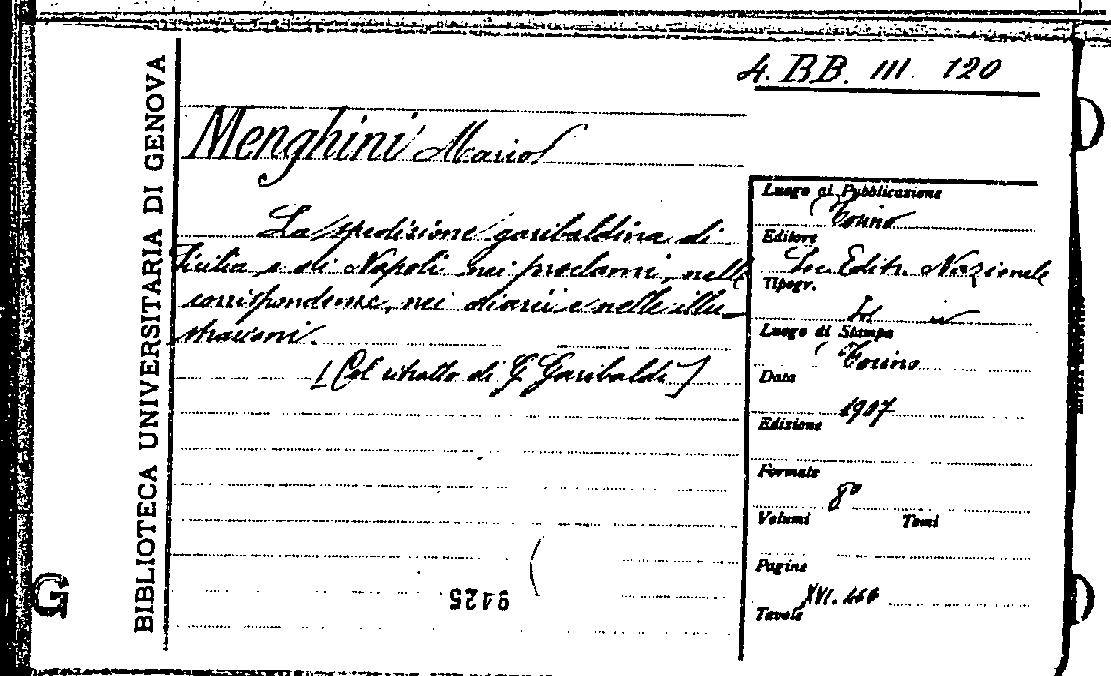 4. BB. III. 120
BIBLIOTECA UNIVERSITARIA DI GENOVA
Menghini Mario
La spedizione garibaldina di
Sicilia e di Napoli nei proclami, nelle
corrispondenze, nei diarii e nelle illu-
strazioni.
[Col ritratto di G. Garibaldi]
Luogo di Pubblicazione
Torino
Editore
Soc. Editr. Nazionale
Tipogr.
Id
Luogo di Stampa
Torino
Data
1907
Edizione
Formato
8°
Volumi Tomi
Pagine
XVI.
Tavole
9425
G